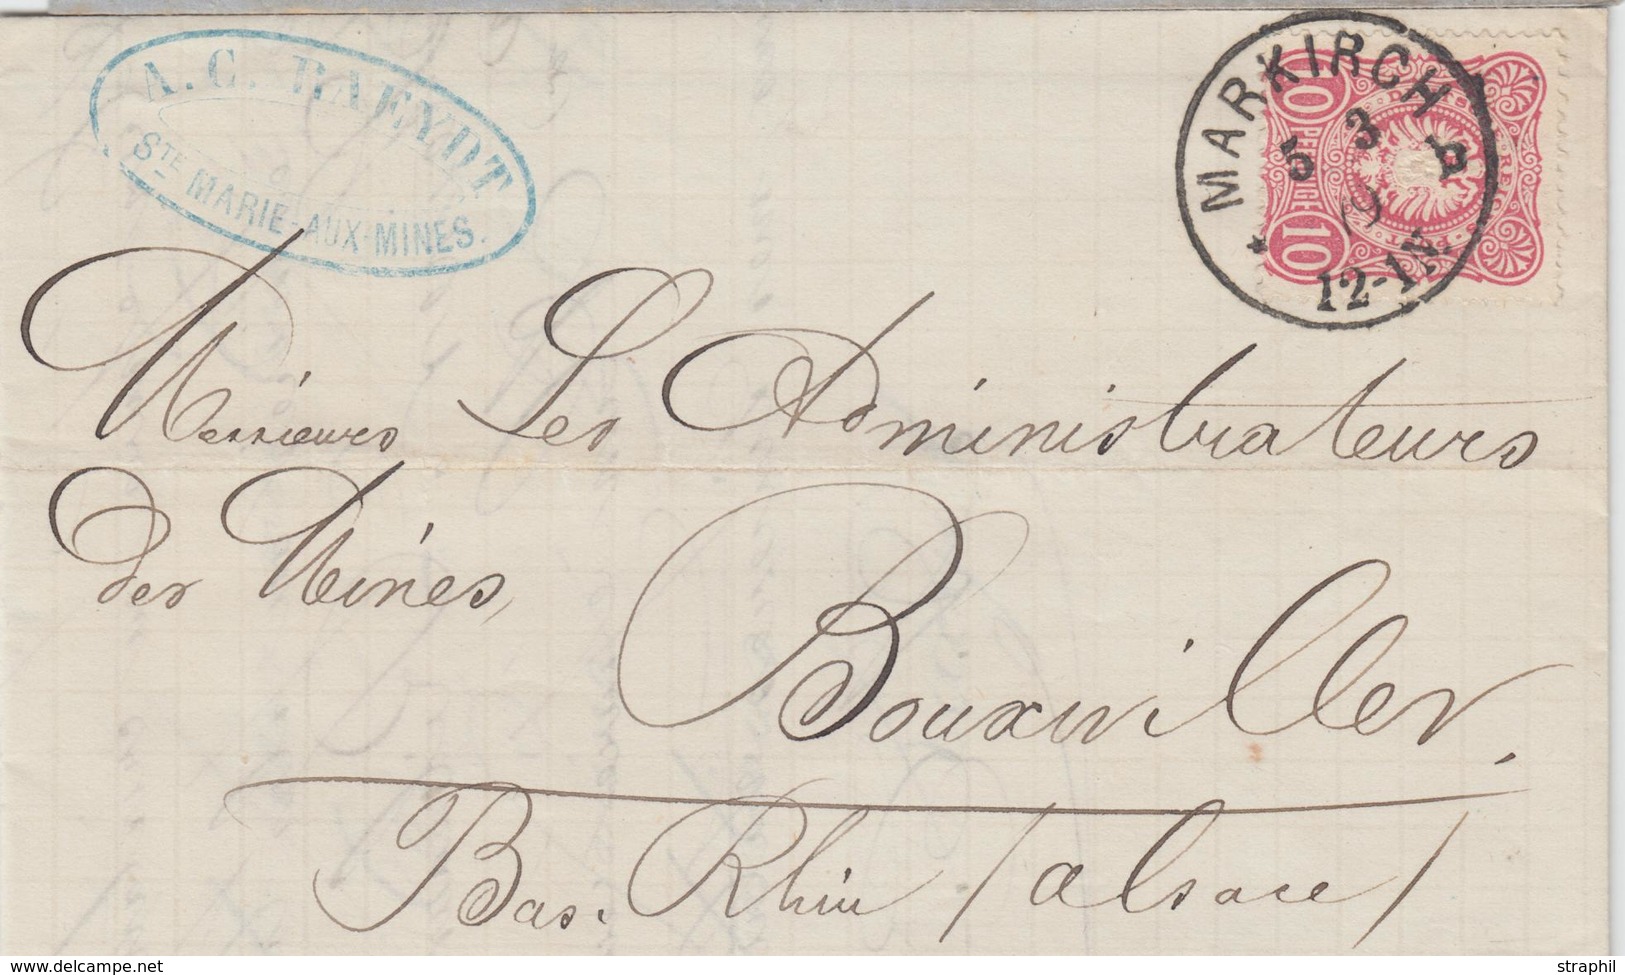 A. C. RAEYDT
STE MARIE-AUX-MINES.
MARKIRCH
5 3
12-1N
10 PFENNIGE 10
Messieurs Les Administrateurs
des Mines,
Bouxwiller.
Bas. Rhin / alsace /
www.delcampe.net
straphil